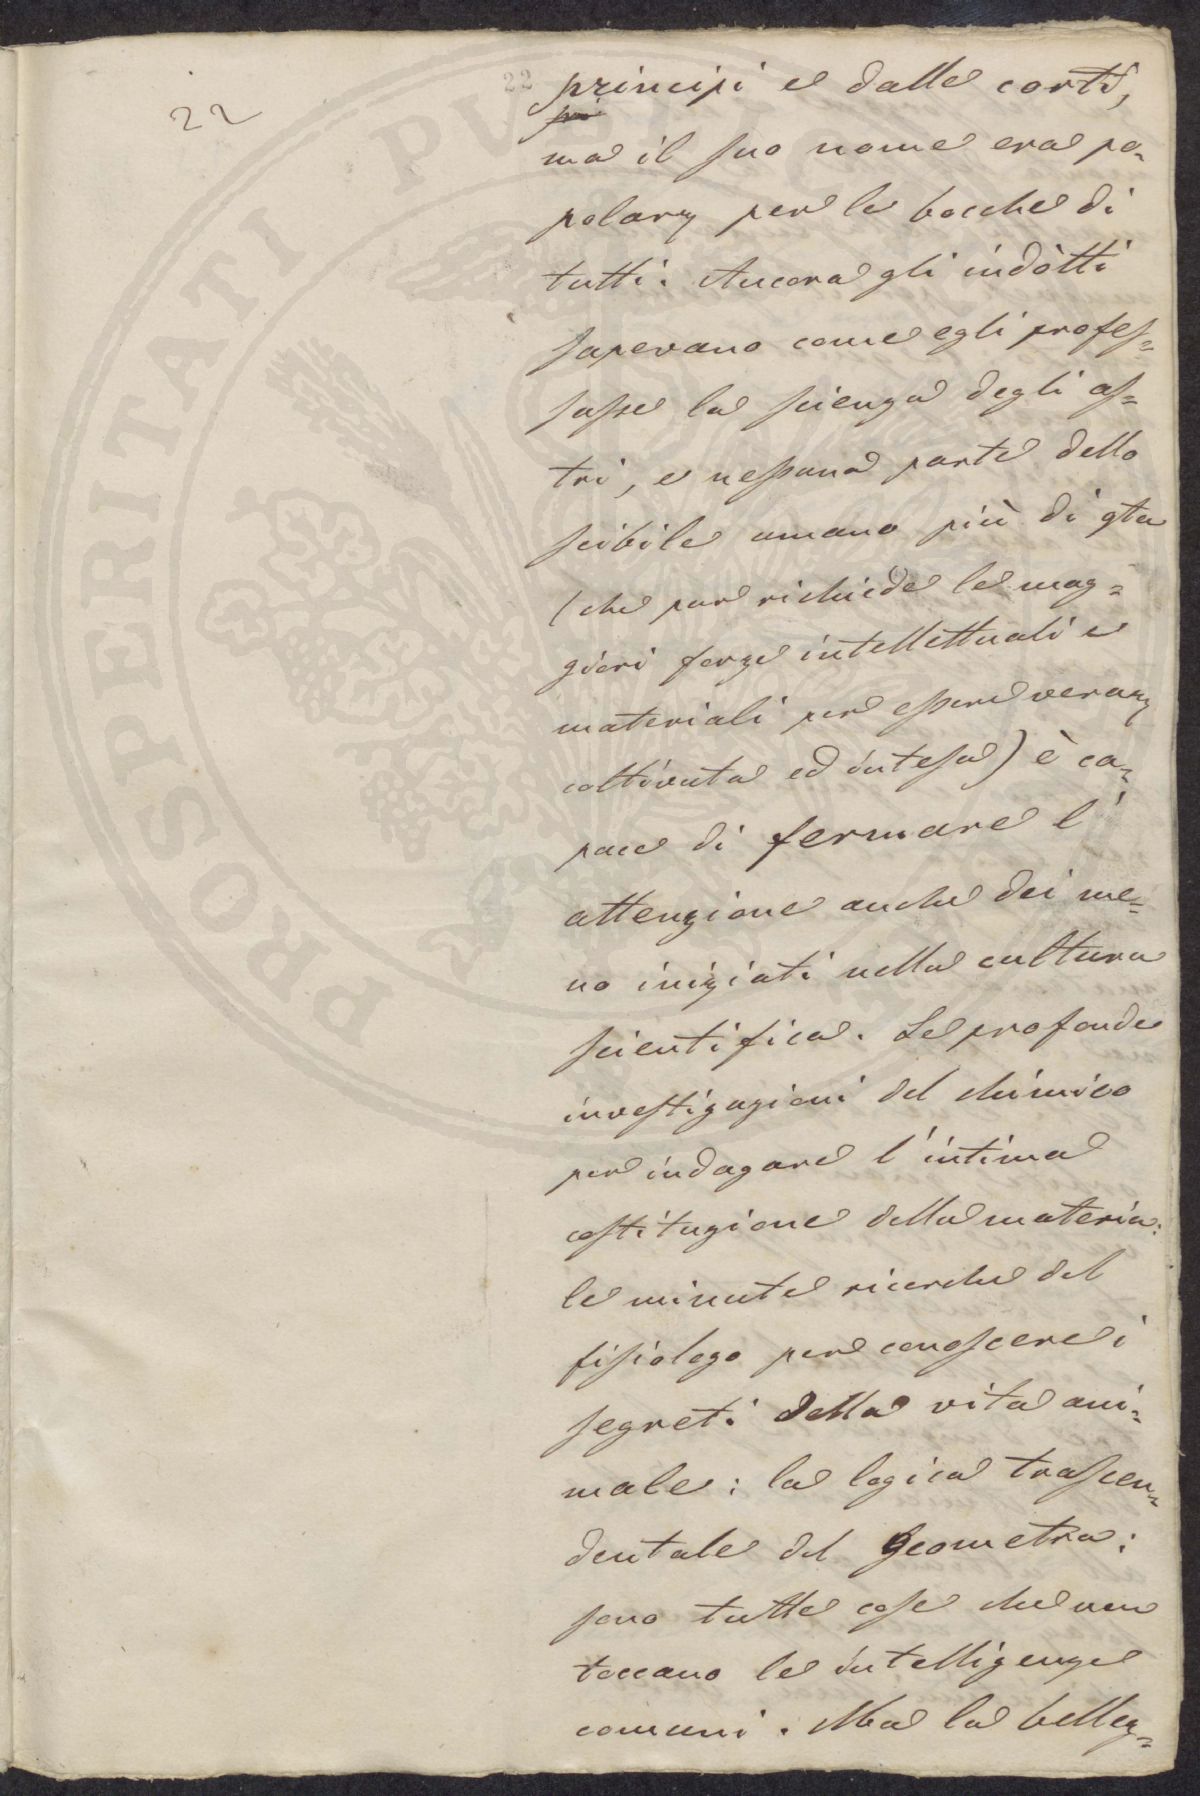 22
22
principi e dalle corti,
ma il suo nome era po=
polare per le bocche di
tutti. Ancora gli indòtti
sapevano come egli profes=
sasse la scienza degli as=
tri, e nessuna parte dello
scibile umano più di qta
(che pur richiede le mag=
giori forze intellettuali e
materiali per essere veram
coltivata ed intesa) è ca=
pace di fermare l'
attenzione anche dei me=
no iniziati nella cultura
scientifica. Le profonde
investigazioni del chimico
per indagare l'intima
costituzione della materia:
le minute ricerche del
fisiologo per conoscere i
segreti della vita ani=
male: la logica trascen=
dentale del Geometra:
sono tutte cose che non
toccano le intelligenze
comuni. Ma la bellez=
PROSPERITATI